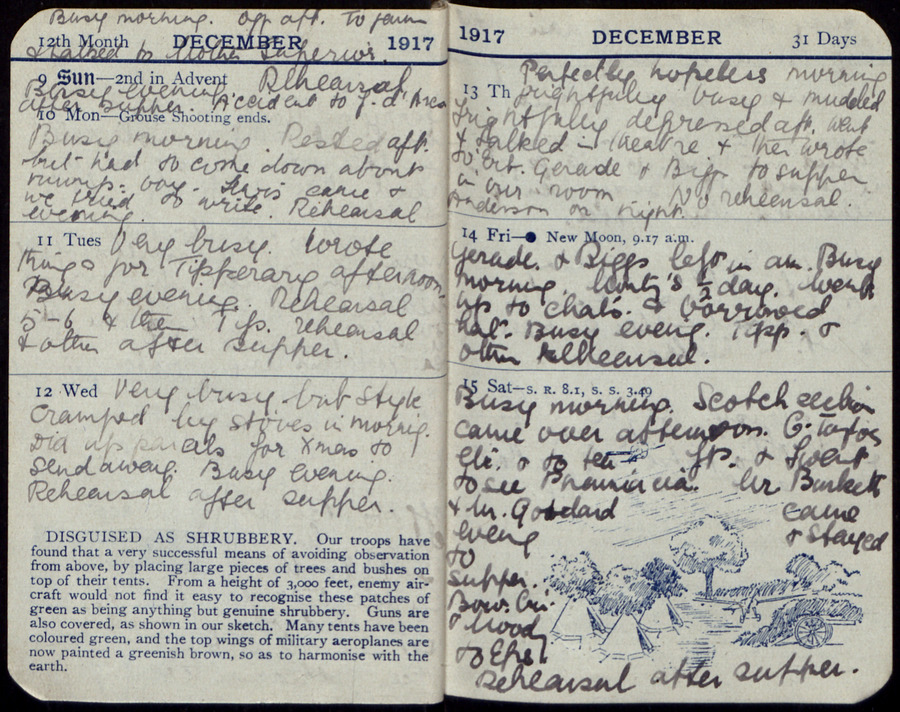 Busy morning. Off aft. To
12th Month DECEMBER 1917
& talked to Mother Superior.
9 Sun—2nd in Advent Rehearsal
Busy evening.
after supper. Accident to
10 Mon—Grouse Shooting ends.
Busy morning. Rested aft.
but had to come down about
mumps boy. came &
we tried to write. Rehearsal
evening.
11 Tues Very busy. Wrote
things for Tipperary afternoon.
Busy evening. Rehearsal
5-6 & then Tip. rehearsal
& other after supper.
12 Wed Very busy but style
cramped by stoves in morning.
Did up parcels for Xmas to
send away. Busy evening.
Rehearsal after supper.
DISGUISED AS SHRUBBERY. Our troops have
found that a very successful means of avoiding observation
from above, by placing large pieces of trees and bushes on
top of their tents. From a height of 3,000 feet, enemy air-
craft would not find it easy to recognise these patches of
green as being anything but genuine shrubbery. Guns are
also covered, as shown in our sketch. Many tents have been
coloured green, and the top wings of military aeroplanes are
now painted a greenish brown, so as to harmonise with the
earth.
1917 DECEMBER 31 Days
Perfectly hopeless morning
13 Th frightfully busy & muddled
frightfully depressed aft. Went
& talked in theatre & then wrote
to Gerade & Biggs to supper
in our room No rehearsal.
Anderson on night.
14 Fri—● New Moon, 9.17 a.m.
Gerade & Biggs left in am. Busy
morning. ½ day. Went
up to & borrowed
hat. Busy eveng. Tipp. &
other Rehearsal.
15 Sat—S. R. 8.1, S. S. 3.49
Busy morning. Scotch section
came over afternoon. G. Taylor
& to tea & I went
to see Mr Burkett
& Mr. Goddard came
eveng & stayed
to
supper.
Moody
to
Rehearsal after supper.